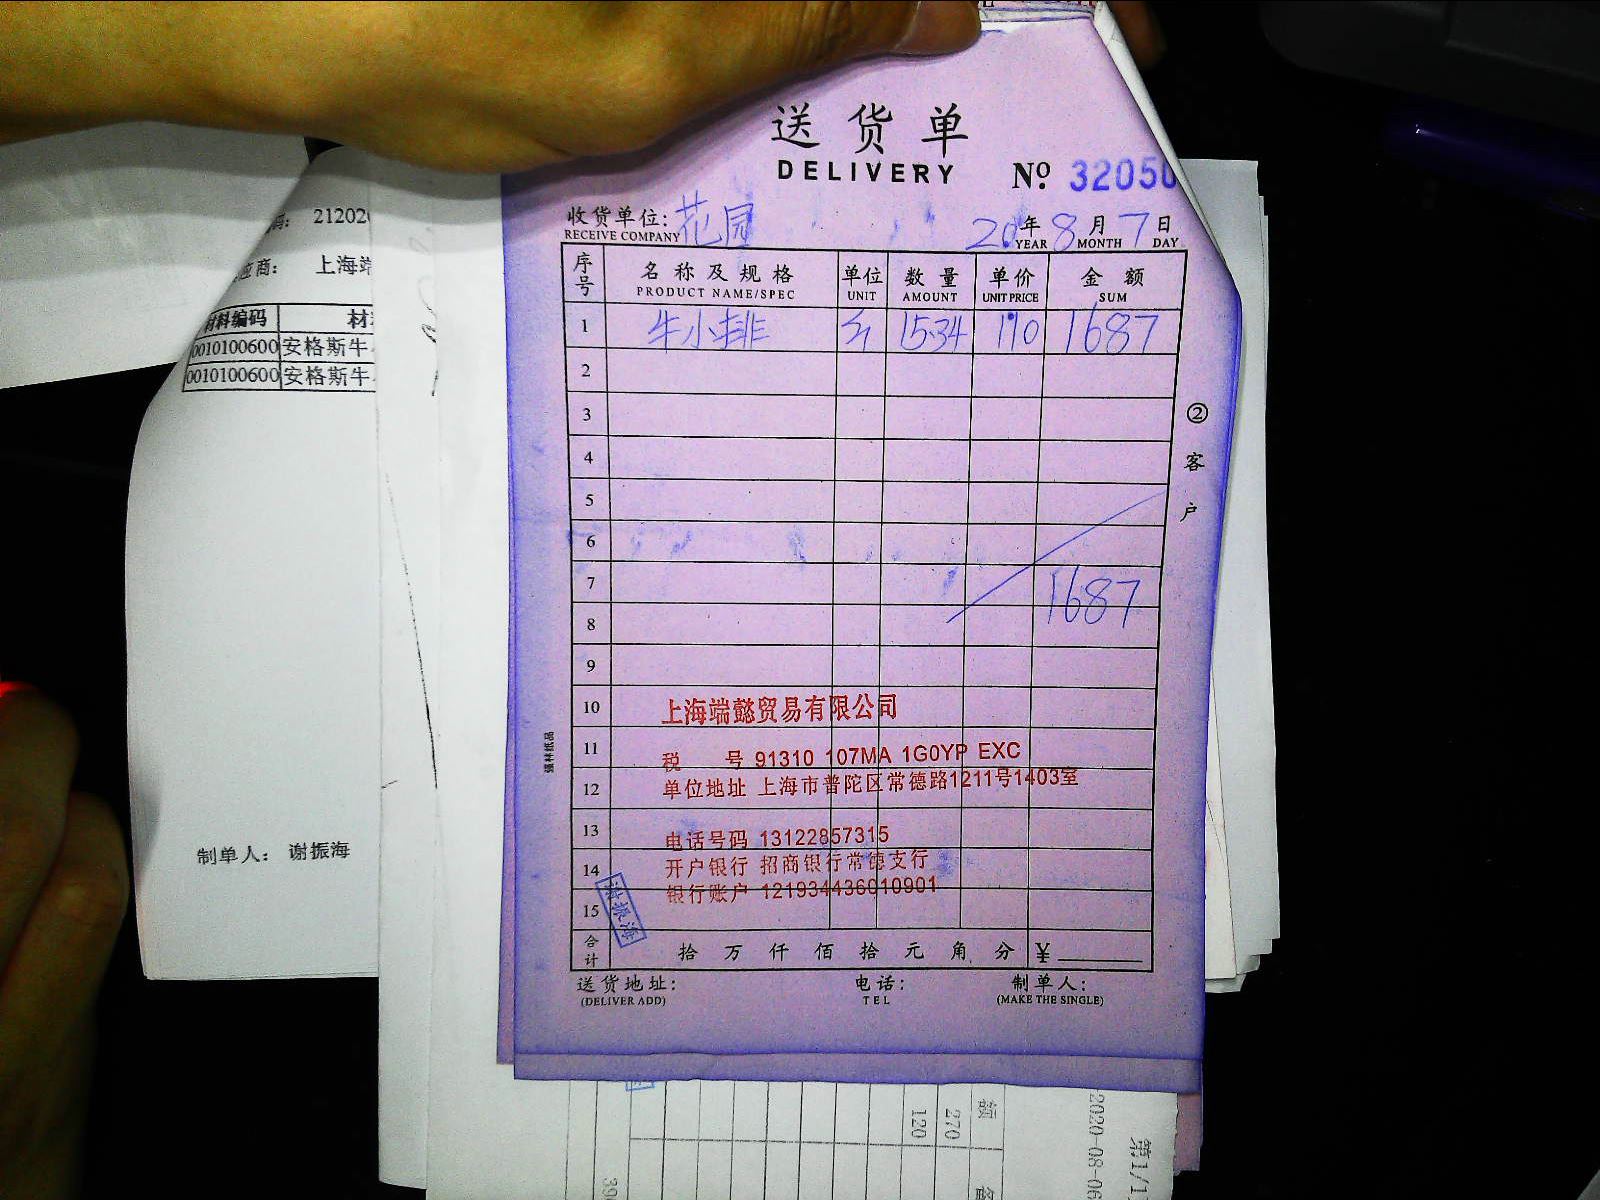 送货单
DELIVERY
Nº. 32050
收货单位: 花园
RECEIVE COMPANY
20年8月7日
YEAR MONTH DAY
序号 名称及规格 单位 数量 单价 金额
PRODUCT NAME/SPEC UNIT AMOUNT UNIT PRICE SUM
1 牛小排 15.34 110 1687
2
3
4
5
6
7 1687
8
9
10
11
12
13
14
15
② 客户
上海端懿贸易有限公司
税 号 91310 107MA 1G0YP EXC
单位地址 上海市普陀区常德路1211号1403室
电话号码 13122857315
开户银行 招商银行常德支行
银行账户 121934436010901
谢振海
合计 拾 万 仟 佰 拾 元 角 分 ¥
送货地址: 电话: 制单人:
(DELIVER ADD) TEL (MAKE THE SINGLE)
码: 21202
应商: 上海端
材料编码 材
0010100600 安格斯牛
0010100600 安格斯牛
制单人: 谢振海
额
270
120
2020-08-06
第1/1